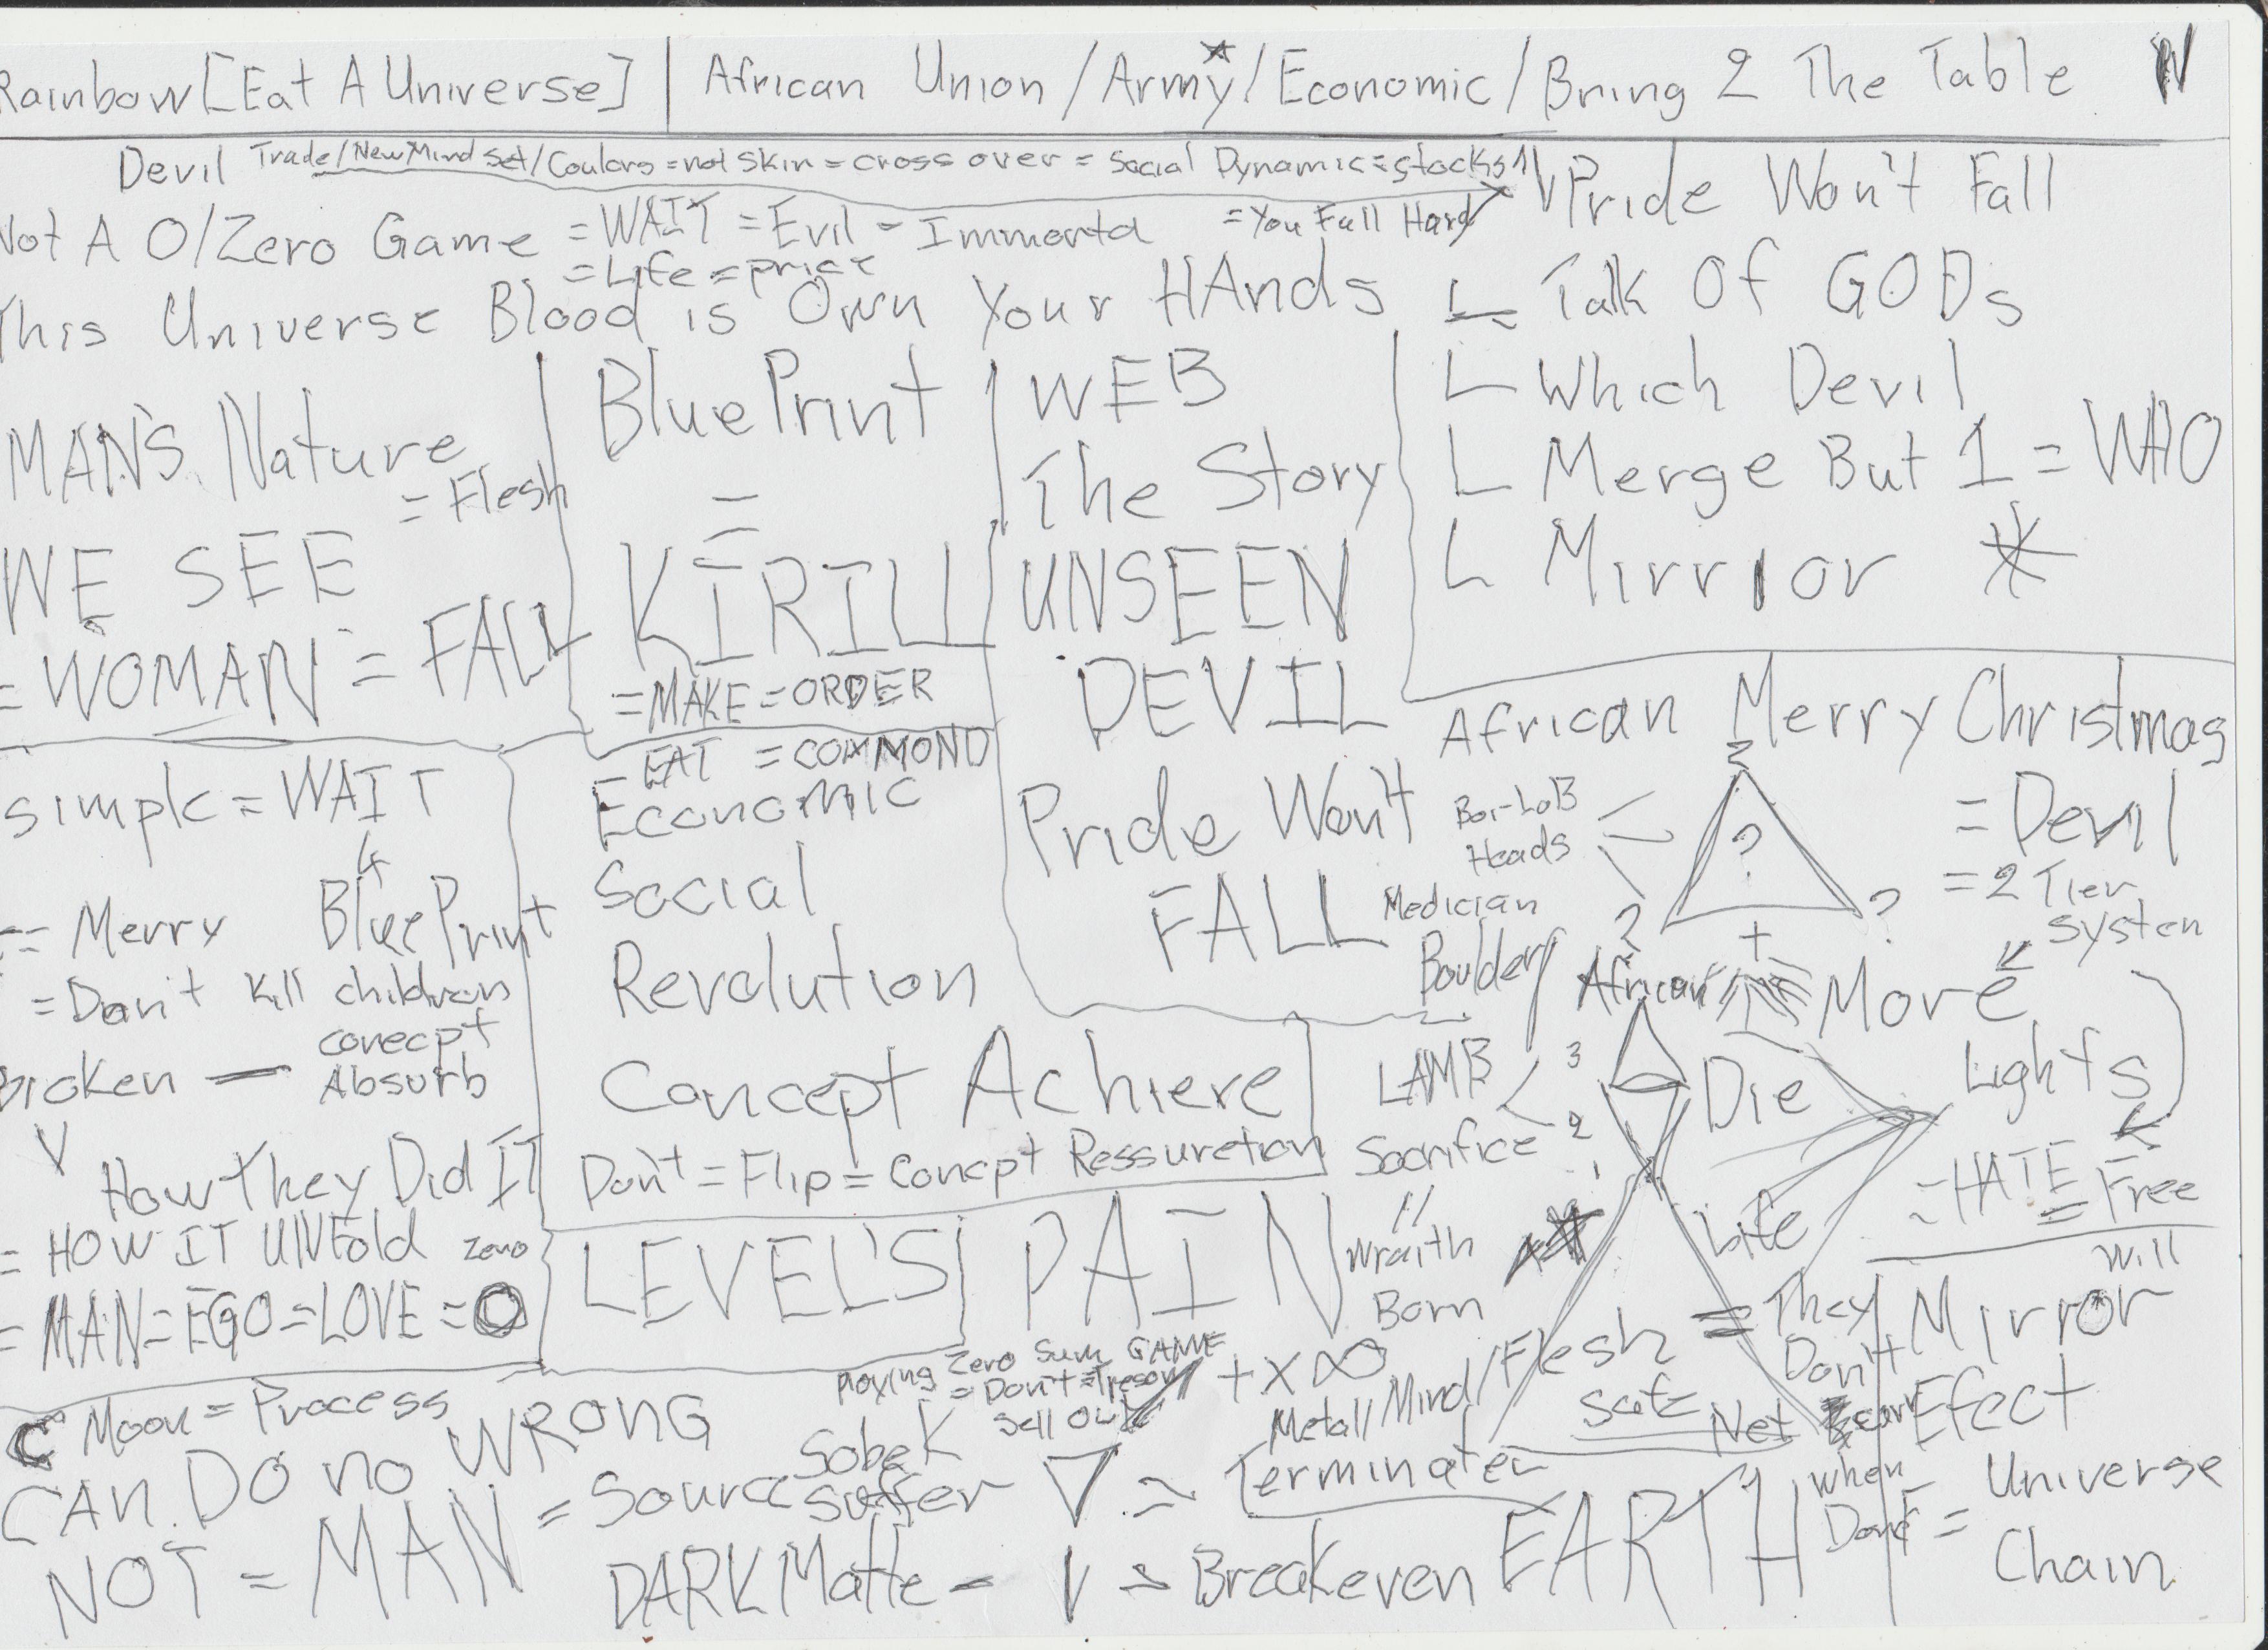 Rainbow [Eat A Universe] | African Union / Army / Economic / Bring 2 The Table
Devil Trade/New Mind Set/Coulors = not skin = cross over = Social Dynamic = stocks
Not A O/Zero Game = WAIT = Evil = Immorta = You Fall Hard
= Life = price
This Universe Blood is Own Your HAnds
Pride Won't Fall
Talk Of GODs
Which Devil
Merge But 1 = WHO
Mirrior *
MAN'S Nature
= Flesh
WE SEE
= WOMAN = FALL
BluePrint
=
KIRILL
= MAKE = ORDER
= EAT = COMMOND
WEB
The Story
UNSEEN
DEVIL
Pride Won't
FALL
African Merry Christmas
= Devil
= 2 Tier
System
More
Lights
= HATE = Free
will
Mirror
Efect
= Universe
Chain
?
?
?
?
Heads
Medician
Boulder
African
+
LAMB
Sacrifice
3
2
1
Die
Life
"
Wraith
Born
simple = WAIT
BluePrint
= Merry
= Don't Kill children
conecpt
Broken — Absurb
V
How They Did IT
= HOW IT UNFold zero
= MAN = EGO = LOVE = O
Economic
Social
Revolution
Concept Achieve
Don't = Flip = Concept Ressuretion
LEVEL'S PAIN
C Moon = Process
CAN DO no WRONG
NOT = MAN = Source
Sobek
Suffer
Playing Zero Sum GAME
= Don't = Treson
Sell Out
+ x ∞
Metal/Mind/Flesh = They
Don't
Safe Net
when
Done
= Terminater
DARK Matte - V = Breakeven EARTH